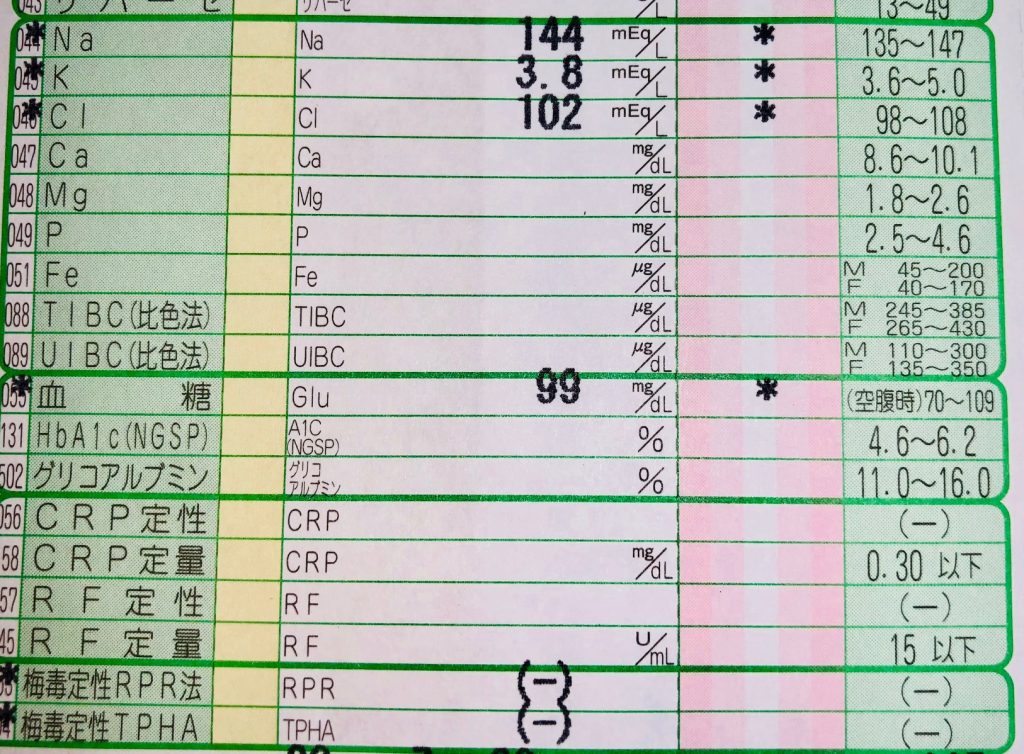 043 リパーゼ リパーゼ U/L 13～49
044 * Na Na 144 mEq/L * 135～147
045 * K K 3.8 mEq/L * 3.6～5.0
046 * Cl Cl 102 mEq/L * 98～108
047 Ca Ca mg/dL 8.6～10.1
048 Mg Mg mg/dL 1.8～2.6
049 P P mg/dL 2.5～4.6
051 Fe Fe μg/dL M 45～200
F 40～170
088 TIBC(比色法) TIBC μg/dL M 245～385
F 265～430
089 UIBC(比色法) UIBC μg/dL M 110～300
F 135～350
055 * 血糖 Glu 99 mg/dL * (空腹時)70～109
131 HbA1c(NGSP) A1C (NGSP) % 4.6～6.2
502 グリコアルブミン グリコアルブミン % 11.0～16.0
056 CRP定性 CRP (－)
58 CRP定量 CRP mg/dL 0.30 以下
57 RF定性 RF (－)
45 RF定量 RF U/mL 15 以下
* 梅毒定性RPR法 RPR (－) (－)
* 梅毒定性TPHA TPHA (－) (－)